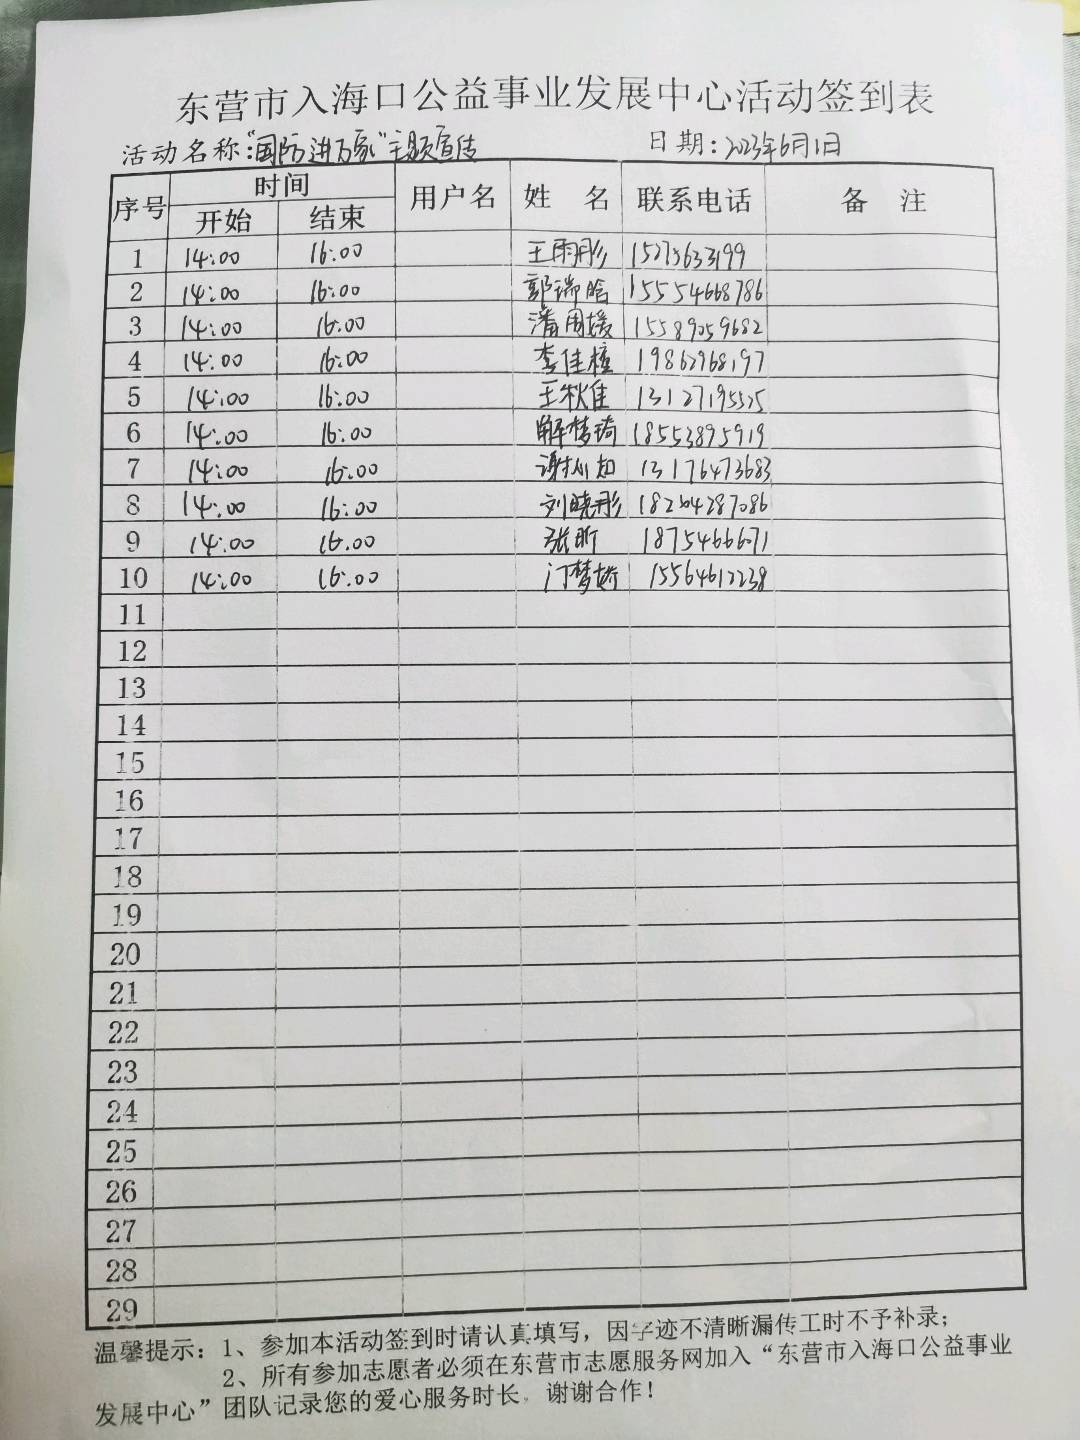 东营市入海口公益事业发展中心活动签到表
活动名称：“国防进万家”主题宣传 日期：2023年6月1日
序号 时间 用户名 姓 名 联系电话 备 注
开始 结束
1 14:00 16:00 王雨彤 15275633199
2 14:00 16:00 郭瑞晗 15554668786
3 14:00 16:00 潘周媛 15589059682
4 14:00 16:00 李佳桓 19862968197
5 14:00 16:00 王秋佳 13127195525
6 14:00 16:00 解梦琦 18553895919
7 14:00 16:00 13176473683
8 14:00 16:00 刘晓彤 18204287086
9 14:00 16:00 张昕
10 14:00 16:00 门梦娇 15564612238
11
12
13
14
15
16
17
18
19
20
21
22
23
24
25
26
27
28
29
温馨提示：1、参加本活动签到时请认真填写，因字迹不清晰漏传工时不予补录；
2、所有参加志愿者必须在东营市志愿服务网加入“东营市入海口公益事业
发展中心”团队记录您的爱心服务时长，谢谢合作！